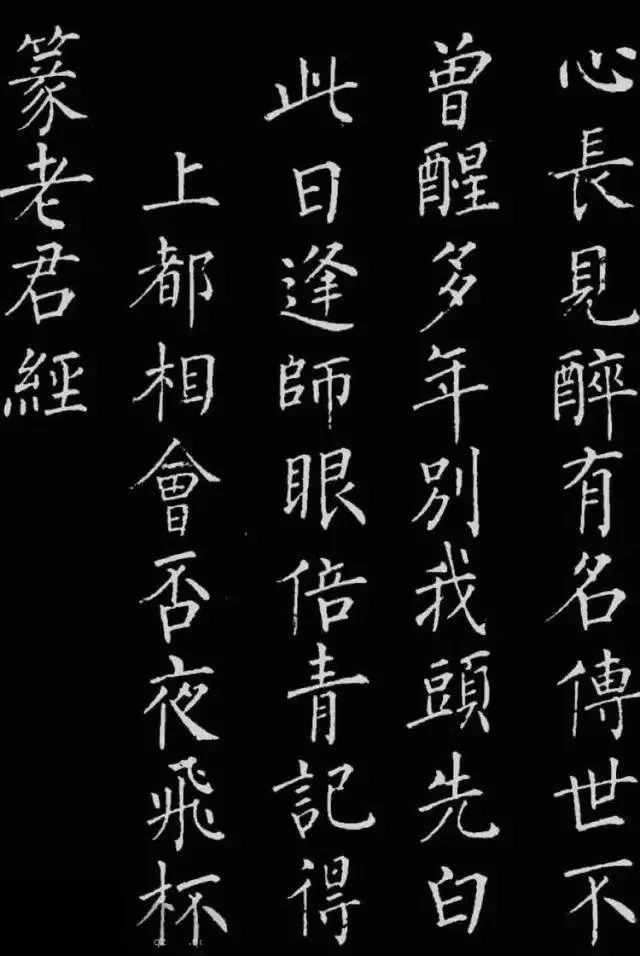 心長見醉有名傳世不
曾醒多年別我頭先白
此日逢師眼倍青記得
上都相會否夜飛杯
篆老君經